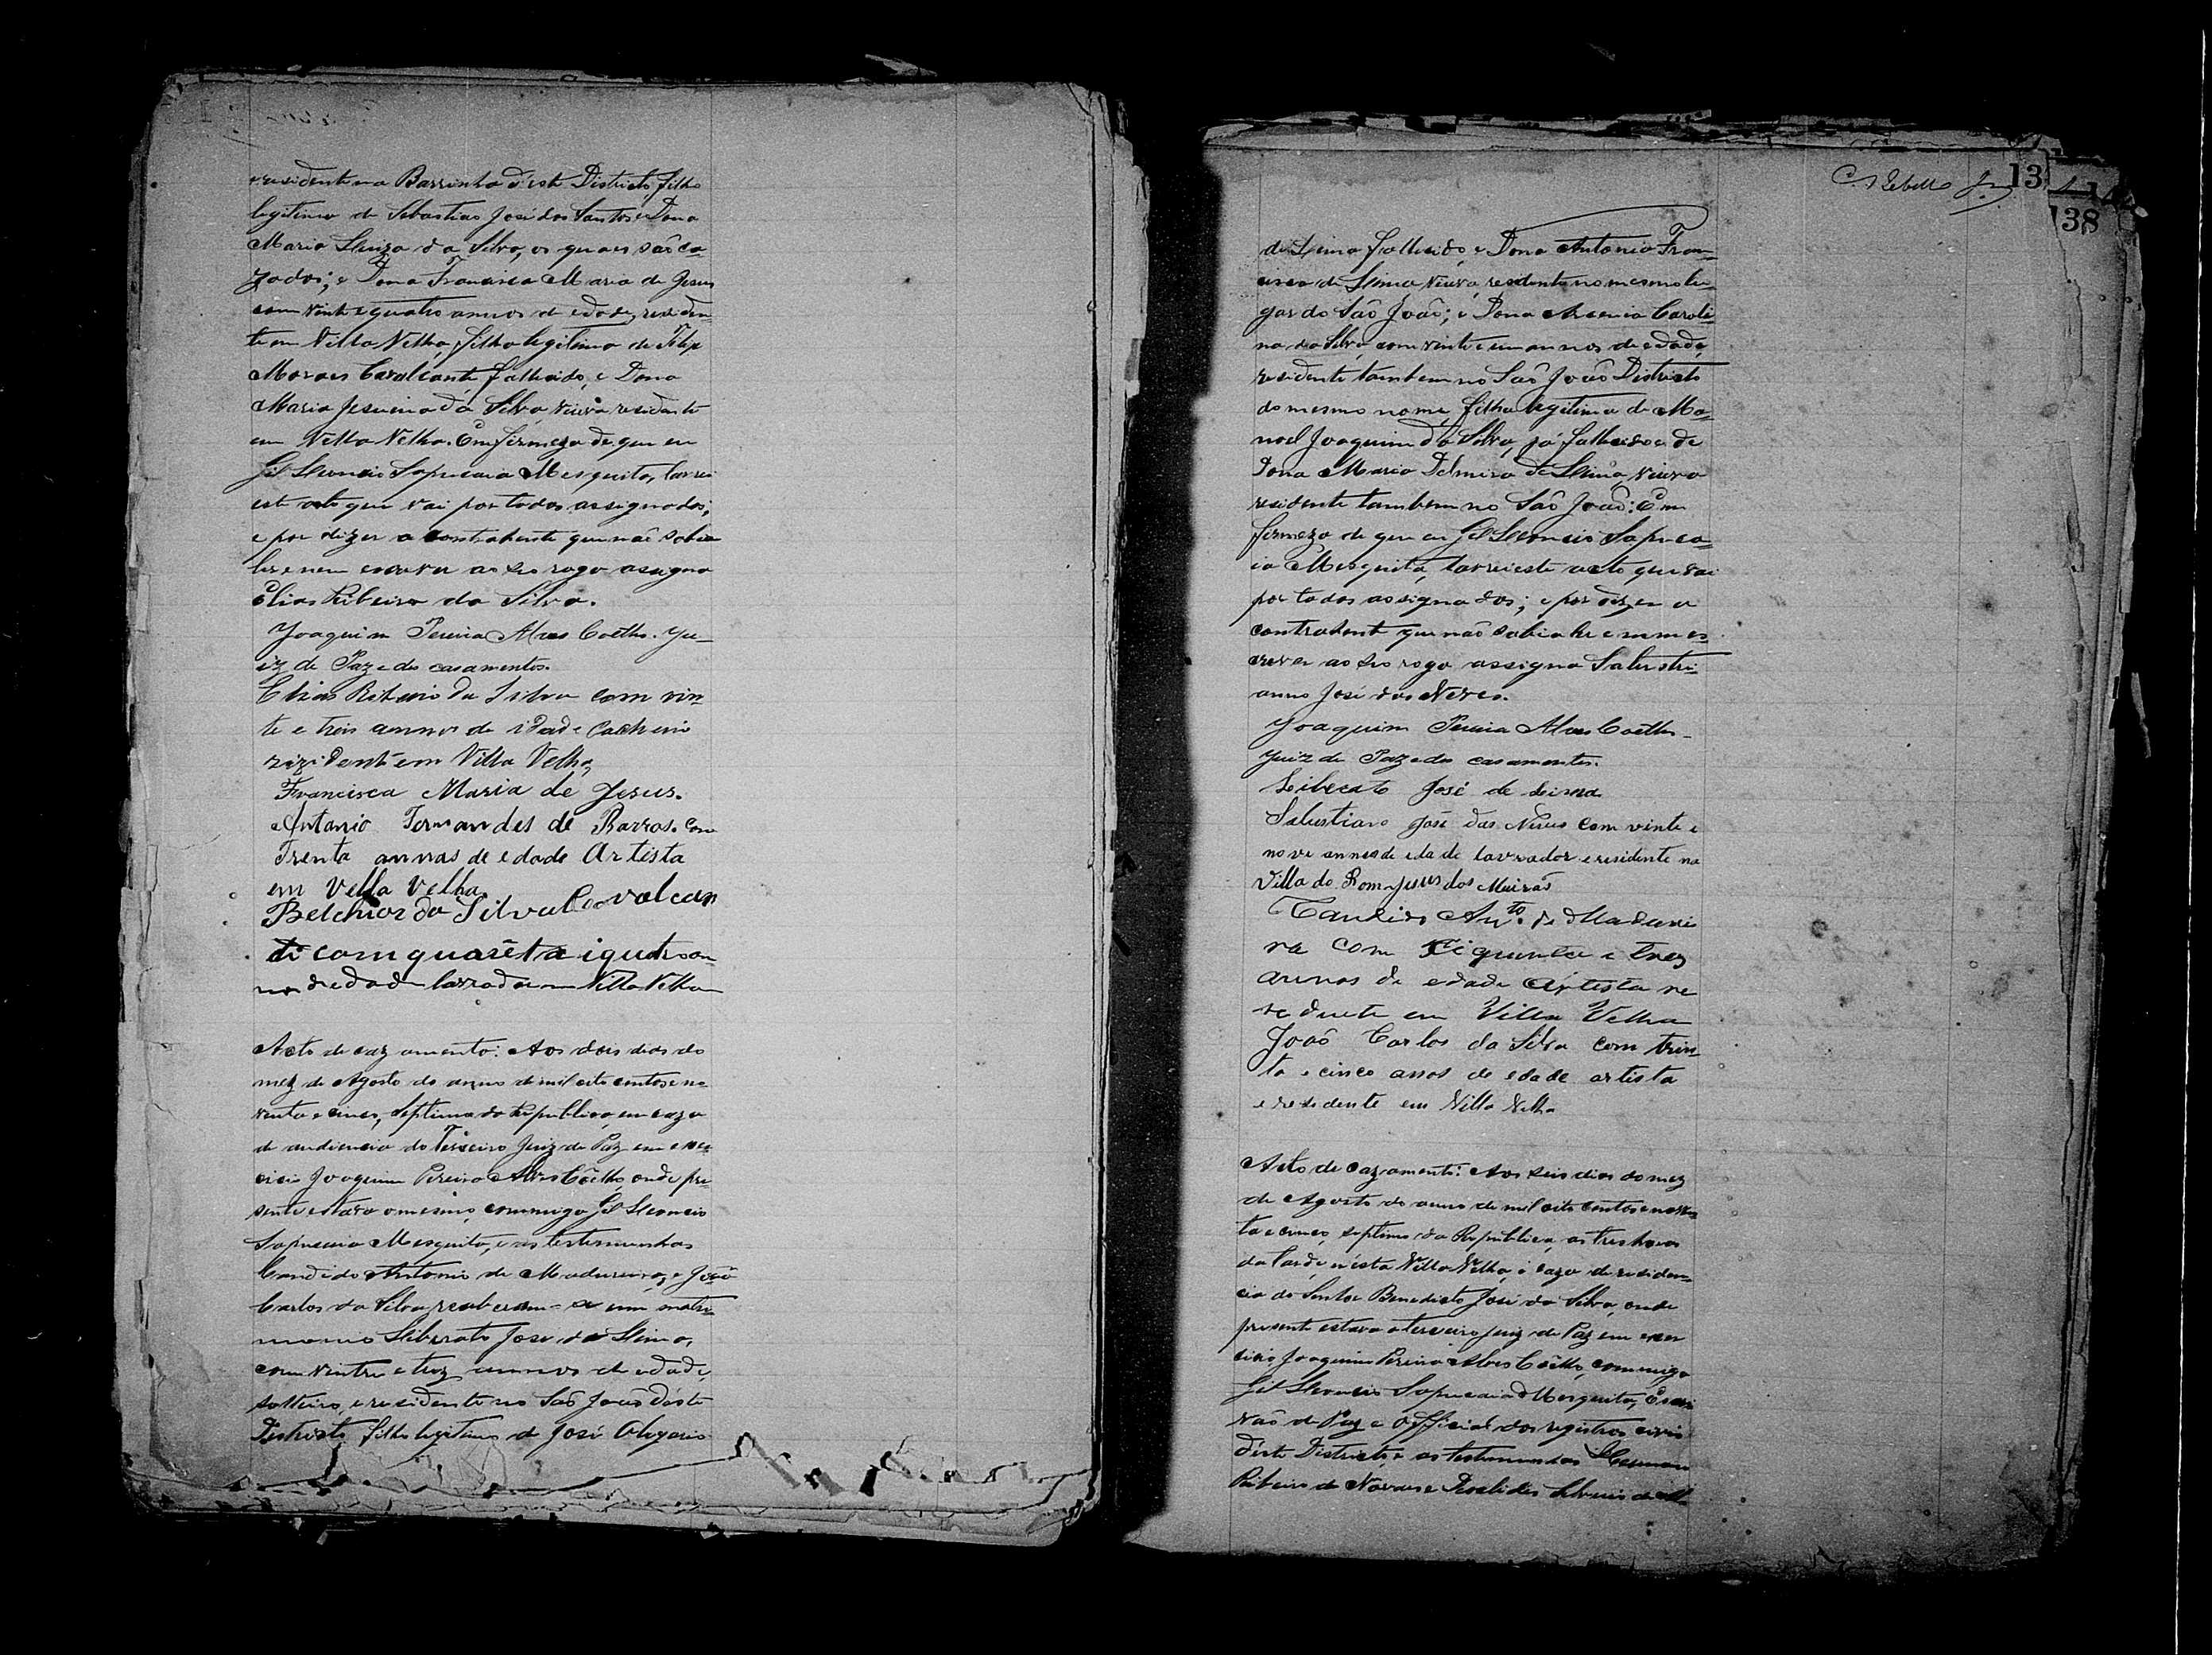 residente na Barrinha d'este Districto, filho
legitimo de Sebastião José dos Santos e Dona
Maria Luiza da Silva, os quaes são ca-
zados; e Dona Francisca Maria de Jesus
com vinte e quatro annos de edade, residen-
te em Villa Velha, filha legitima de Felip
Moraes Cavalcante, fallecido, e Dona
Maria Jesuina da Silva, viuva residente
em Villa Velha. Em firmeza de que eu
Gil Leoncio Sapucaia Mesquita, lavrei
este acto que vai por todos assignados;
e por dizer a contrahente que não sabia
ler e nem escrever ao seu rogo assigna
Elias Ribeiro da Silva.
Joaquim Pereira Alves Coelho. Ju-
iz de Paz e dos casamentos.
Elias Ribeiro da Silva com vin-
te e treis annos de idade
rizidente em Villa Velha,
Francisca Maria de Jesus.
Antonio Fernandes de Barros. com
Trenta annos de edade Artista
em Vella Velha.
Belchior da Silva Cavalcan
ti com quarēta i quatro an-
nos de edade lavrador em Villa Velha
Acto de cazamento: Aos dois dias do
mez de Agosto do anno de mil oito centos e no-
venta e cinco, septimo da Republica, em caza
de audiencia do Terseiro Juiz de Paz em exer-
cicio Joaquim Pereira Alves Coêlho, onde pre-
sente estava o mesmo, commigo Gil Leoncio
Sapucaia Mesquita, e as testemunhas
Candido Antonio de Madureira, e João
Carlos da Silva, receberam-se em matri-
monio Liberato José de Lima,
com vinte e trez annos de edade,
solteiro, e residente no São João déste
Districto filho legitimo de José Olegario
C. Rebello Jr.
13
138
de Lima fallecido, e Dona Antonia Fran-
cisca de Lima viuva, residente no mesmo lu-
gar do São João; e Dona Arcenia Caroli-
na da Silva, com vinte e um annos de edade,
residente tambem no São João Districto
do mesmo nome, filha legitima de Ma-
noel Joaquim da Silva, já fallecido e de
Dona Maria Delmira de Lima, viuva
residente tambem no São João: Em
firmeza de que eu Gil Leoncio Sapuca-
ia Mesquita, lavrei este acto que vai
por todos assignados; e por dizer a
contradente que não sabia ler e nem es-
crever ao seu rogo assigna Salustri-
anno José das Neves.
Joaquim Pereira Alves Coelho-
Juiz de Paz e dos casamentos.
Leibecato José de Leima
Salustiano José das Neves com vinte e
nove annos de edade lavrador e residente na
Villa do Bom Jesus dos Meiras
Candido Anto. de Madurei
ra com ciquenta e trez
annos de edade Artista re
zedente em Villa Velha
João Carlos da Silva com trin-
ta e cinco anos de edade artista
e residente em Villa Velha
Acto de cazamento: Aos seis dias do mez
de Agosto do anno de mil oito centos e noven-
ta e cinco, septimo da Republica, as tres horas
da tarde, n'esta Villa Velha, e caza de residen-
cia do Senhor Benedicto José da Silva, onde
presente estava o terceiro juiz de Paz em exer
cicio Joaquim Pereira Alves Coêlho, commigo
Gil Leoncio Sapucaia Mesquita, Escri
vão de Paz e Official dos registros civis
déste Districto, e as testemunhas
Ribeiro de Novaes e